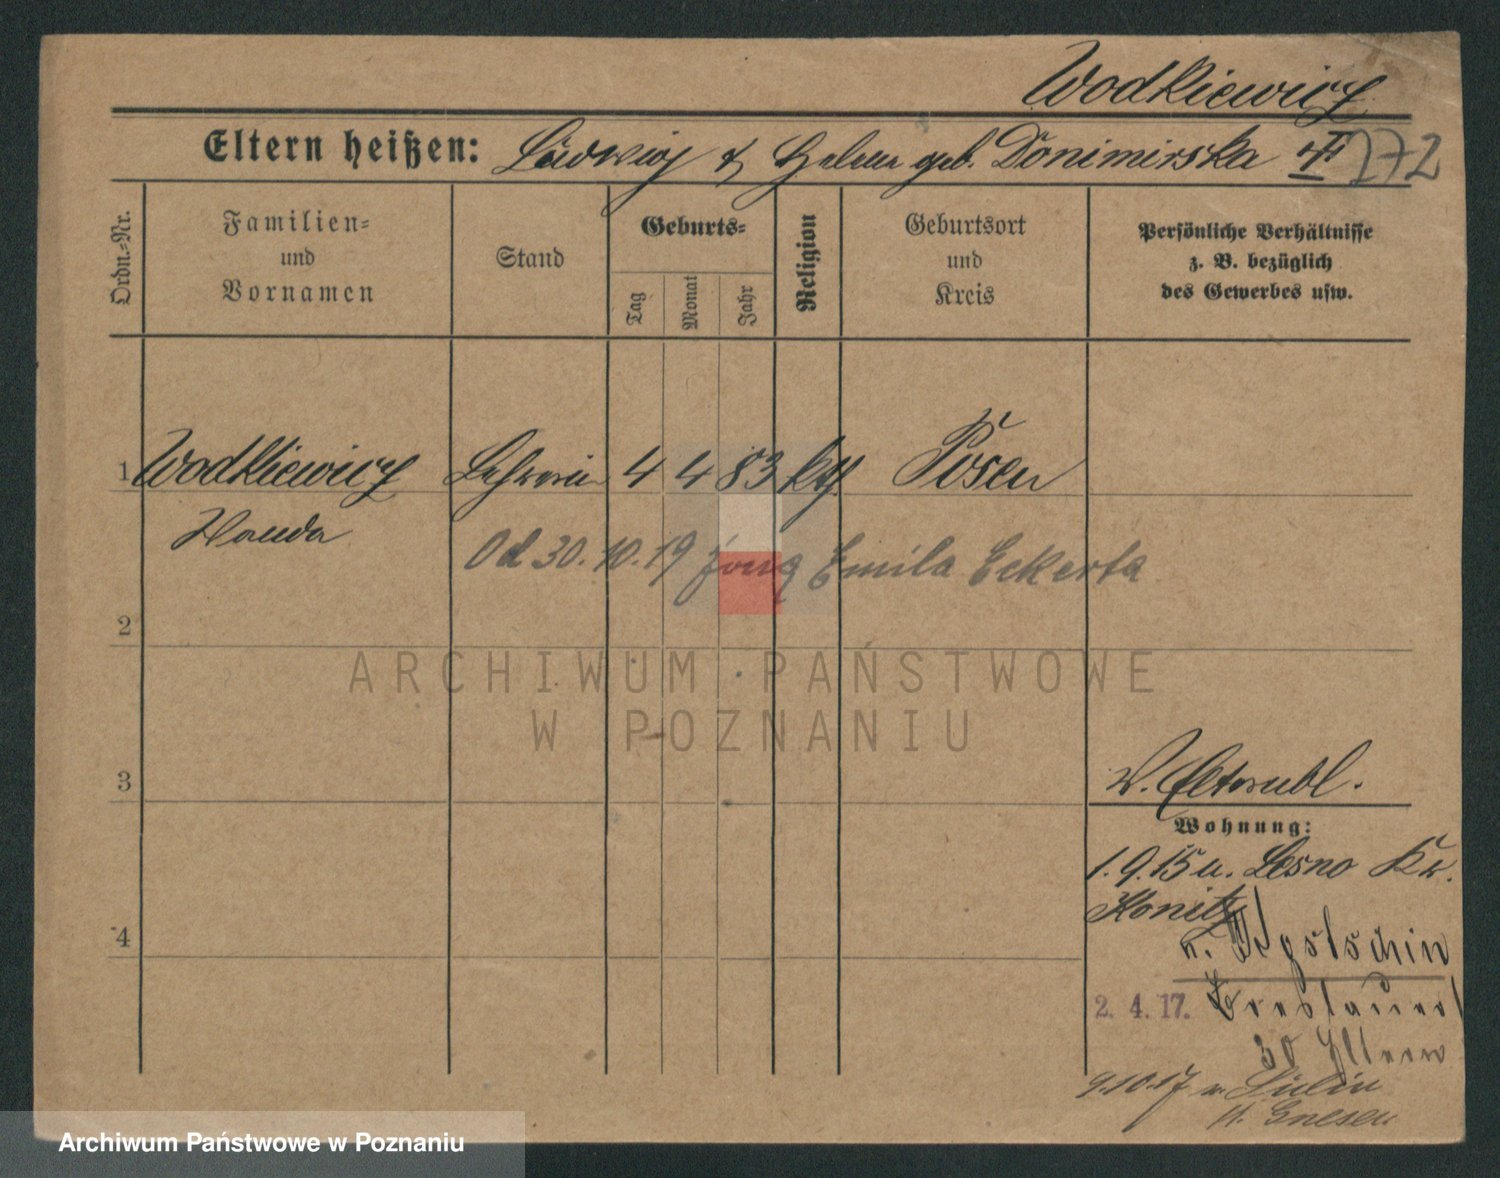 Wodkiewicz
Eltern heißen: Ludwig & Helene geb. Donimirska 172
Ordn.-Nr.
Familien-
und
Vornamen
Stand
Geburts-
Tag
Monat
Jahr
Religion
Geburtsort
und
Kreis
Persönliche Verhältnisse
z. B. bezüglich
des Gewerbes usw.
1 Wodkiewicz Lehrerin 4 4 83 kth. Posen
Wanda
Od 30.10.19 żoną Emila Eckerta
2
ARCHIWUM PAŃSTWOWE
W POZNANIU
3
4
Wohnung:
1.9.15 n. Lesno Kr.
Konitz
n. Gostschin
2. 4. 17. Breslauerst
30 Eltern
9.10.17 n.
Kr. Gnesen
Archiwum Państwowe w Poznaniu